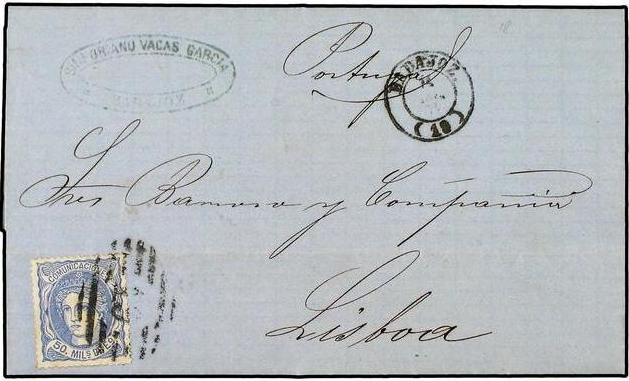 SINFORIANO VACAS GARCIA
BADAJOZ
Portugal
BADAJOZ
(10)
Sres Barroso y Compañia
Lisboa
COMUNICACIONES
50. MILS DE E.